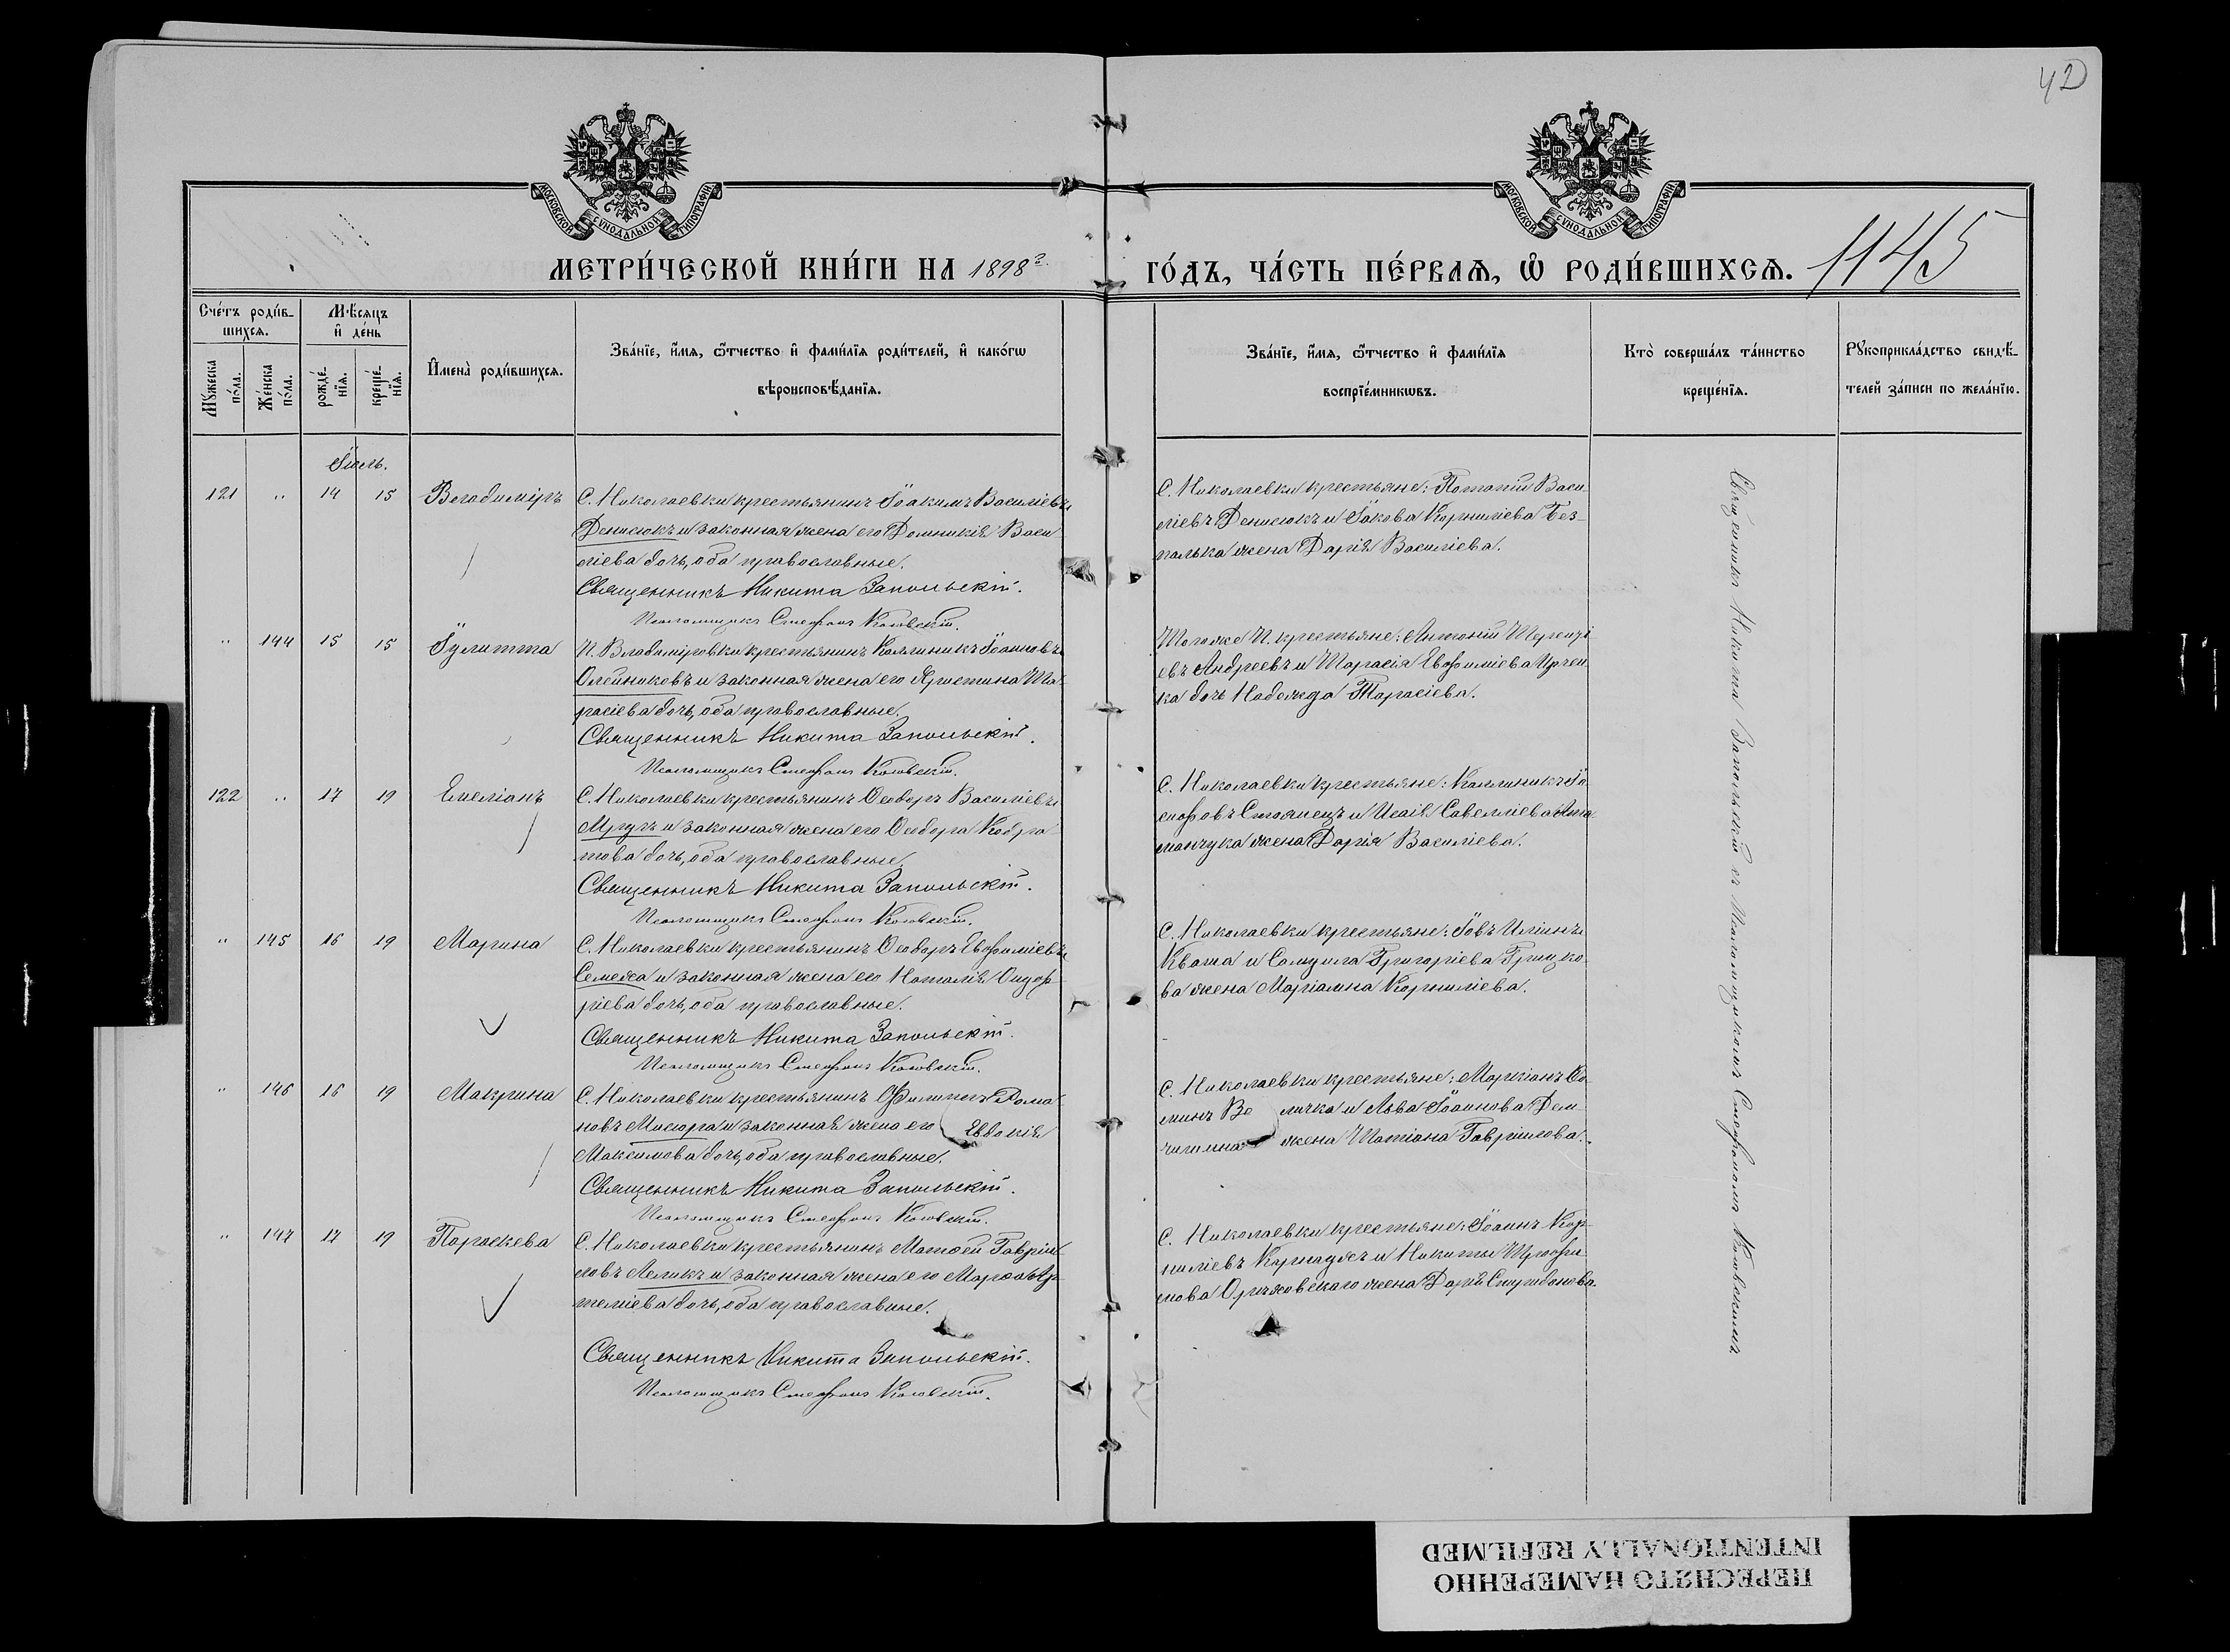 42
МОСКОВСКОЙ СѴНОДАЛЬНОЙ ТИПОГРАФІИ
МОСКОВСКОЙ СѴНОДАЛЬНОЙ ТИПОГРАФІИ
МЕТРИ́ЧЕСКОЙ КНИ́ГИ НА 1898 г.
ГО́ДЪ, ЧА́СТЬ ПЕ́РВАѦ, Ѡ҆ РОДИ́ВШИХСѦ.
1145
Сче́тъ роди́в-
шихсѧ.
Мꙋ́жеска по́ла.
Же́нска по́ла.
Мѣ́сѧцъ
и҆ де́нь
рожде́-
нїѧ.
креще́-
нїѧ.
И҆мена̀ роди́вшихсѧ.
Зва́нїе, и҆́мѧ, ѻ҆́тчество и҆ фами́лїѧ роди́телей, и҆ како́гѡ
вѣроисповѣ́данїѧ.
Зва́нїе, и҆́мѧ, ѻ҆́тчество и҆ фами́лїѧ
воспрїе́мникѡвъ.
Кто̀ соверша́лъ та́инство
креще́нїѧ.
Рꙋкоприкла́дство свидѣ́-
телей за́писи по жела́нїю.
Іюль.
121 " 14 15 Володиміръ
С. Николаевки крестьянинъ Іоакимъ Василіевъ
Денисюкъ и законная жена его Домникія Васи
ліева дочь, оба православные.
Священникъ Никита Запольскій.
Псаломщикъ Стефанъ Косовскій.
С. Николаевки крестьяне: Потапій Васи-
ліевъ Денисюкъ и Іакова Корниліева Без-
палька жена Дарія Василіева.
" 144 15 15 Іулитта
Н. Владиміровки крестьянинъ Каллиникъ Іоанновъ
Олейниковъ и законная жена его Христина Та-
расіева дочь, оба православные.
Священникъ Никита Запольскій.
Псаломщикъ Стефанъ Косовскій.
Той же Н. крестьяне: Антоній Теренті-
евъ Андреевъ и Тарасія Евфиміева
ка дочь Надежда Тарасіева.
122 " 17 19 Емеліанъ
С. Николаевки крестьянинъ Ѳеодоръ Василіевъ
и законная жена его Ѳеодора Кодра
това дочь, оба православные.
Священникъ Никита Запольскій.
Псаломщикъ Стефанъ Косовскій.
С. Николаевки крестьяне: Каллиникъ Іо-
сифовъ Стоянецъ и Исаіи Савелліева Ата-
манчука жена Дарія Василіева.
" 145 16 19 Марина
С. Николаевки крестьянинъ Ѳеодоръ Евфиміевъ
Семежа и законная жена его Наталія Онуф-
ріева дочь, оба православные.
Священникъ Никита Запольскій.
Псаломщикъ Стефанъ Косовскій.
С. Николаевки крестьяне: Іовъ Иліинъ
Кваша и Самуила Григоріева Грицко-
ва жена Маріамна Корниліева.
" 146 16 19 Макрина
С. Николаевки крестьянинъ Филиппъ Рома-
новъ Мисюра и законная жена его Евдокія
Максимова дочь, оба православные.
Священникъ Никита Запольскій.
Псаломщикъ Стефанъ Косовскій.
С. Николаевки крестьяне: Маркіанъ Ѳо-
минъ Величка и Льва Іоаннова Дем-
жена Татіана Гавріилова.
" 147 17 19 Параскева
С. Николаевки крестьянинъ Матѳей Гавріи-
ловъ Леликъ и законная жена его Марѳа Ар-
теміева дочь, оба православные.
Священникъ Никита Запольскій.
Псаломщикъ Стефанъ Косовскій.
С. Николаевки крестьяне: Іоаннъ Кор-
ниліевъ и Никиты Трофи-
мова жена Дарія Спиридонова.
Священникъ Никита Запольскій съ Псаломщикомъ Стефаномъ Косовскимъ
ПЕРЕСНЯТО НАМЕРЕННО
INTENTIONALLY REFILMED